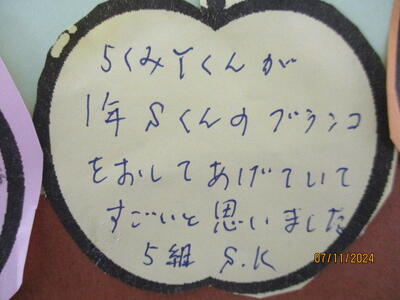 5くみYくんが
1年Sくんのブランコ
をおしてあげていて
すごいと思いました
5組 S.K
07/11/2024